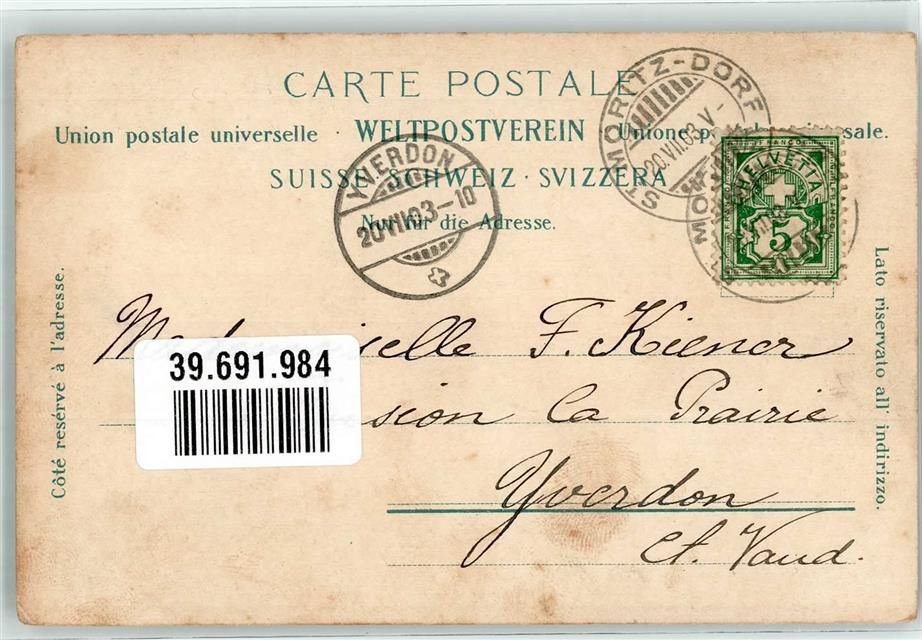 CARTE POSTALE
Union postale universelle · WELTPOSTVEREIN · Unione p rsale.
SUISSE · SCHWEIZ · SVIZZERA
Nur für die Adresse.
ST MORITZ-DORF
20.VII.03.V-
YVERDON
20.VII.03-10
HELVETIA
5
Côté reservé à l'adresse.
Lato riservato all' indirizzo.
M selle F. Kiener
sion La Prairie
Yverdon
Ct. Vaud.
39.691.984